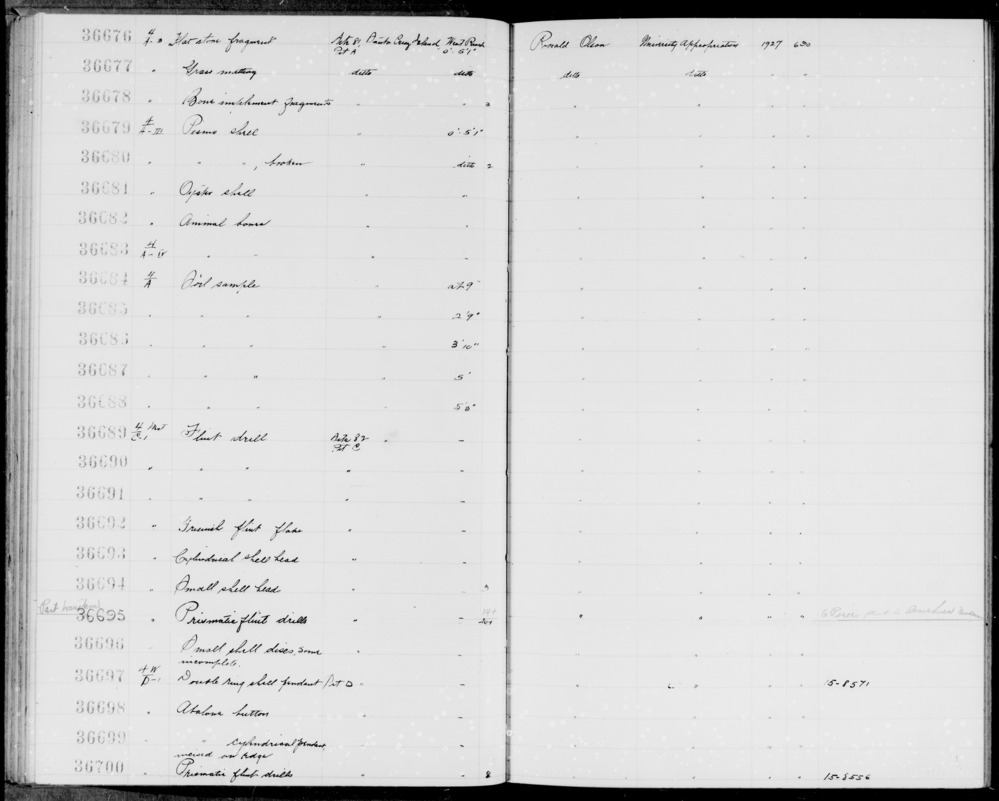 36676 4 Flat stone fragment Site 81, Santa Cruz Island, West Pit A 0'-5'1" Ronald Olson University Appropriation 1927 630
36677 " Grass matting ditto ditto ditto ditto " "
36678 " Bone implement fragments " " " " " "
36679 4 Pismo shell " 0'-5'1" " " " "
36680 " " " , broken " ditto 2 " " " "
36681 " Oyster shell " " " " " "
36682 " Animal bones " " " " " "
36683 4 " " " " " " " "
36684 4/A Soil sample " " " " "
36685 " " " " 2'9" " " " "
36686 " " " " 3'10" " " " "
36687 " " " " 5' " " " "
36688 " " " " " " " "
36689 4 Flint drill Site 82 Pit C " " " " " "
36690 " " " " " " " " "
36691 " " " " " " " " "
36692 " " flint flake " " " " " "
36693 " Cylindrical shell bead " " " " " "
36694 " Small shell bead " " " " " "
36695 " Prismatic flint drills " " " " " "
36696 " Small shell discs, some
incomplete. " " " " " "
36697 Double ring shell pendant Pit D " " " " " 15-8571
36698 " Abalone button " " " " " "
36699 " " cylindrical pendant,
incised on edge " " " " " "
36700 " Prismatic flint drills " " 8 " " " " 15-8556